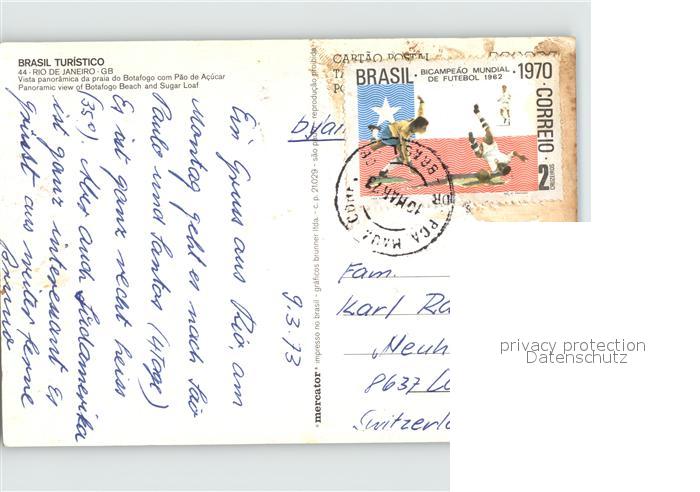 BRASIL TURÍSTICO
44 - RIO DE JANEIRO - GB
Vista panorâmica da praia do Botafogo com Pão de Açúcar
Panoramic view of Botafogo Beach and Sugar Loaf
9.3.73
Ein Gruss aus Rio, am
Montag geht es nach São
Paulo und Santos (4 Tage)
Es ist ganz recht heiss
(35°). Aber auch Südamerika
ist ganz interessant Es
grüsst aus weiter Ferne
Bruno
mercator® impresso no brasil - gráficos brunner ltda. - c. p. 21.029 - são paulo - reprodução proibida
CARTÃO POSTAL
BRASIL
BICAMPEÃO MUNDIAL
DE FUTEBOL 1962
1970
CORREIO
2
CRUZEIROS
PÇA MAUÁ
10 MAR 73
Fam.
Karl
8637
Switzerl
privacy protection
Datenschutz